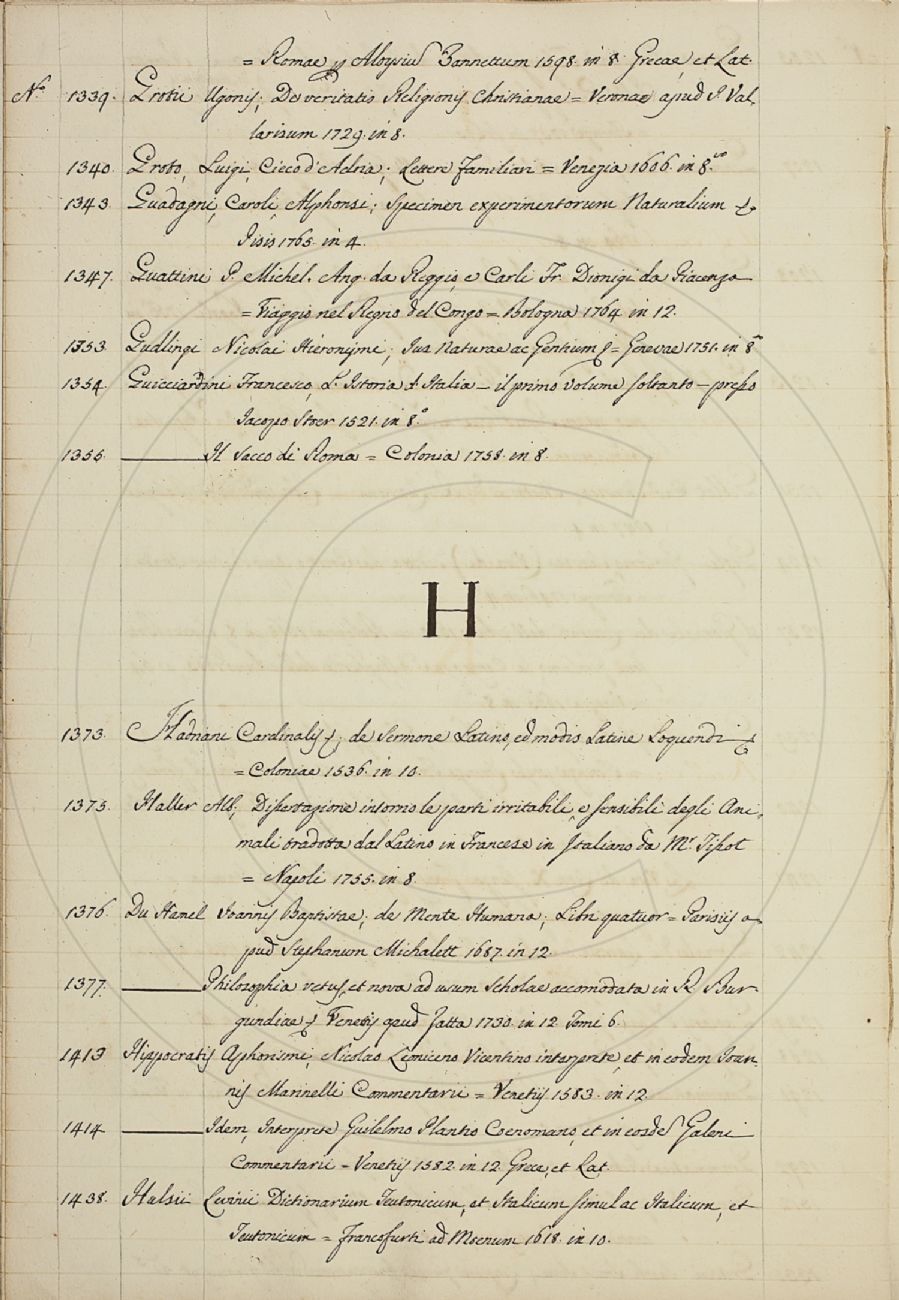 = Romae p Aloysiu Zannettum 1598. in 8. Grecae, et Lat.
N.º 1339. Grotii Ugonis; De veritatis Religionis Christianae = Veronae apud P. Val,
larisum 1729. in 8.
1340. Groto, Luigi, Cieco d'Adria; Lettere familiari = Venezia 1606. in 8.vo
1343. Guadagni, Caroli, Alphonsi; Specimen experimentorum Naturalium
Pisis 1765. in 4.
1347. Guattini P. Michel. Ang. da Reggio, e Carli Fr. Dionigi da Piacenza
= Viaggio nel Regno del Congo = Bologna 1764 in 12.
1353. Gudlingi Nicolai Hieronymi; Jus Naturae ac Gentium = Genevae 1751. in 8.º
1354. Guicciardini Francesco, L'Istoria d'Italia – il primo volume soltanto – presso
Jacopo Stoer 1521. in 8.º
1355. Il Sacco di Roma = Colonia 1758. in 8.
H
1373. Hadriani Cardinalis; de Sermone Latino, ed modis Latine Loquendi
= Coloniae 1536. in 10.
1375. Haller Alb; Dissertazione intorno le parti irritabili, e sensibili degli Ani,
mali tradotta dal Latino in Francese in Italiano da M.r Tissot
= Napoli 1755. in 8.
1376. Du Hamel Joannis Baptistae; de Mente Humana; Libri quatuor = Parisiis a-
pud Stephanum Michalett 1687. in 12.
1377. Philosophia vetus, et nova ad usum Scholae accomodata in R. Bur-
gundiae Venetiis apud Zatta 1730. in 12. Tomi 6.
1413. Hippocratis Aphorismi, Nicolao Leoniceno Vicentino interprete, et in eodem Joan-
nis Marinelli Commentarii = Venetiis 1583. in 12.
1414. Idem, Interprete Guilelmo Plantio Coenomano, et in eosde Galeni
Commentarii = Venetiis 1582. in 12. Grece, et Lat.
1438. Hulsii Levinii Dictionarium Teutonicum, et Italicum simul ac Italicum, et
Teutonicum = Francofurti ad Moenum 1618. in 10.